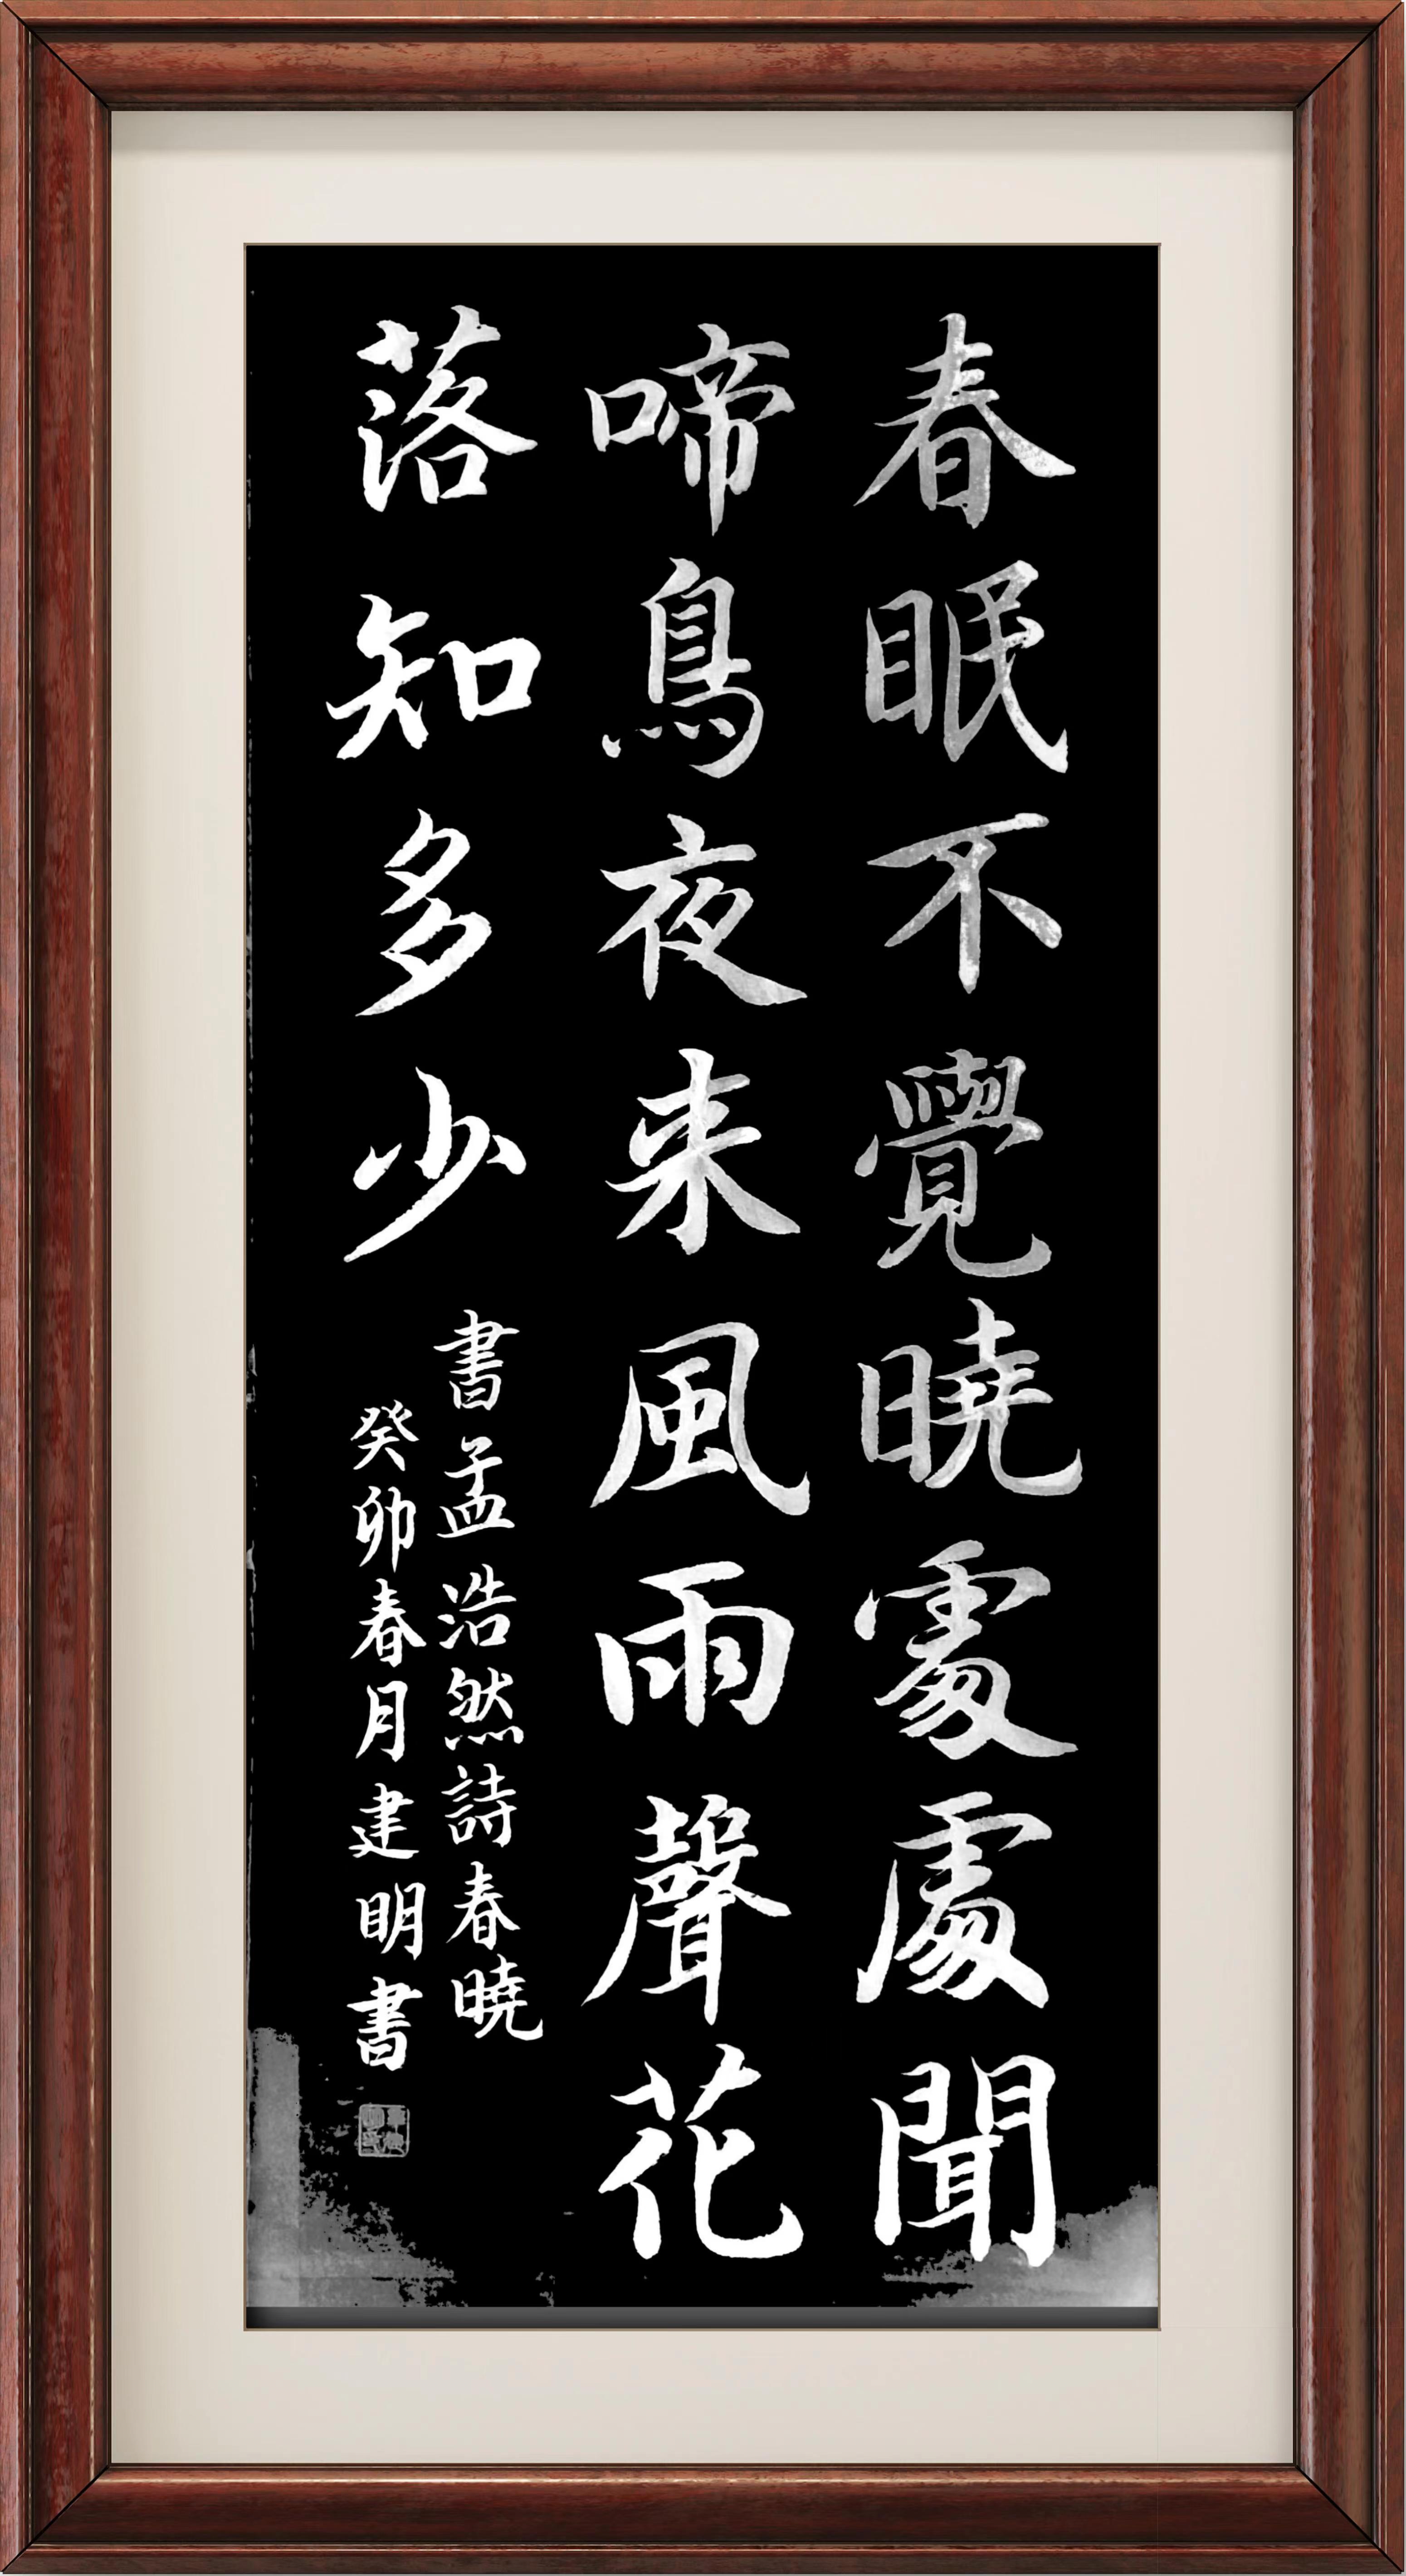 春眠不覺曉處處聞
啼鳥夜来風雨聲花
落知多少
書孟浩然詩春曉
癸卯春月建明書